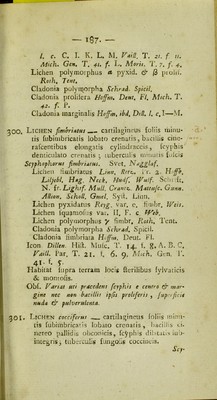 — 187. —
l. c. C. I. K. L. M. Vaill. T. 21. f. 11.
Mich. Gen. T. 41. f. 1. Moris. T. 7. f. 4.
Lichen polymorphus α pyxid. & β prolif.
Roth, Tent.
Cladonia polymorpha Schrad. Spicil.
Cladonia prolifera Hoffm. Deut, Fl, Mich. T.
42. f. F.
Cladonia marginalis Hoffm. ibd, Dill. l. c, I—M.
300. LICHEN fimbriatus — cartilagineus foliis minu-
tis subimbricatis lobato crenatis, bacillis cine-
rascentibus elongatis cylindraceis, scyphis
denticulato crenatis; tuberculis minutis fuscis
Scyphophorus fimbriatus. Svet, Naggläf,
Lichen fimbriatus Linn, Retz. Fr. 2. Hoffb,
Liljebl, Hag. Neck, Huds, Wulf. Schäff,
N. fr. Lightf. Mull. Crantz. Mattusc. Gunn.
Allion, Scholl, Gmel, Syst. Linn.
Lichen pyxidatus Reig. var, e, simbr, Weis.
Lichen squamosus var. II, F. c. Web.
Lichen polymorphus γ simbr, Roth, Tent.
Cladonia polymorpha Schrad, Spicil.
Cladonia fimbriata Hoffm. Deut. Fl.
Icon Dillen. Hist. Musc. T. 14. f. 8. A. B. C,
Vaill. Par. T. 21. f. 6. 9. Mich. Gen. T.
41. f. 5.
Habitat supra terram locis sterilibus sylvaticis
& momosis.
Obs. Variat uti præcedens scyphis e centro & mar-
gine nec non bacillis ipsis proliferis, superficie
nuda & pulverulenta.
301. LICHEN cocciferus — cartilagineus foliis minu-
tis subimbricatis lobato crenatis, bacillis ci-
nereo pallidis obconicis, scyphis dilatatis sub-
integris, tuberculis fungosis coccineis.
Scy-